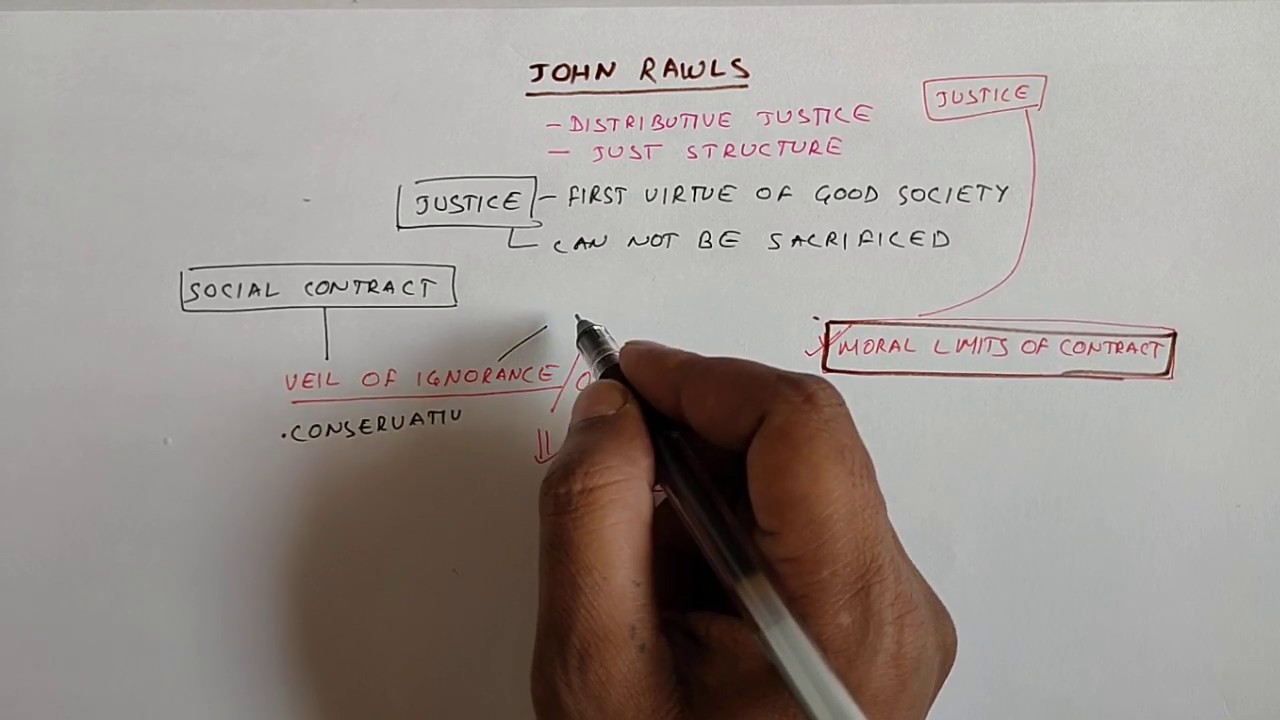 JOHN RAWLS
JUSTICE
- DISTRIBUTIVE JUSTICE
- JUST STRUCTURE
JUSTICE - FIRST VIRTUE OF GOOD SOCIETY
CAN NOT BE SACRIFICED
SOCIAL CONTRACT
MORAL LIMITS OF CONTRACT
VEIL OF IGNORANCE / O
.CONSERVATIV